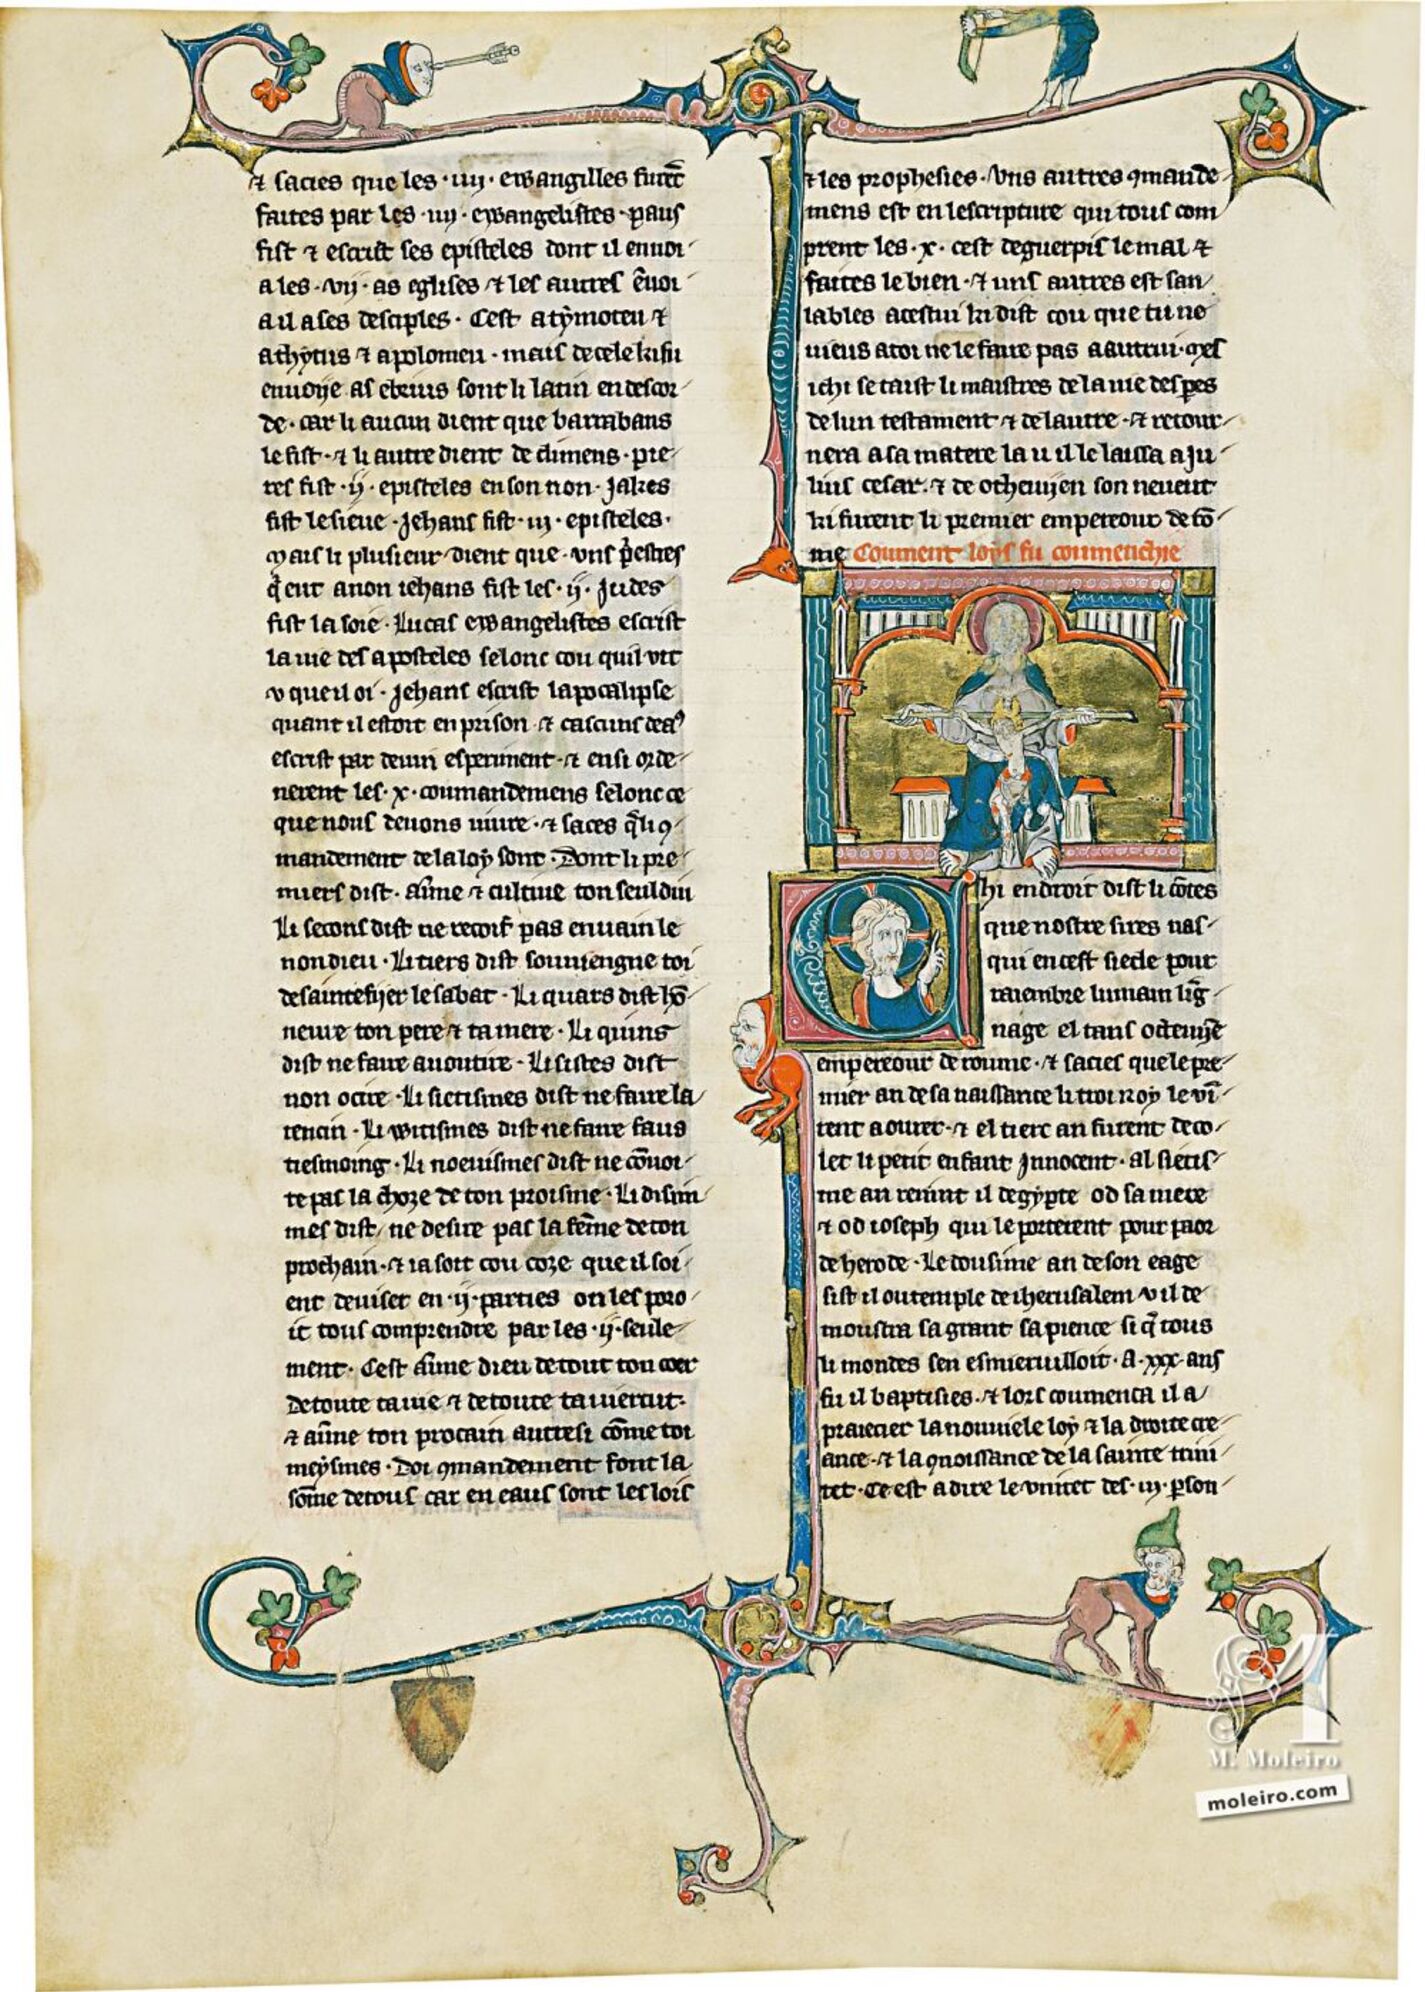 ⁊ sacies que les ·iiij· ewangilles furēt
faites par les ·iiij· ewangelistes · paus
fist ⁊ escrist ses episteles dont il enuoi
a les ·vij· as eglises ⁊ les autres ēuoi
a il a ses desciples · Cest a tymoteu ⁊
a thytus ⁊ a polomeu · mais de cele ki fu
enuoye as ebrius sont li latin en descor
de · car li aucun dient que barrabans
le fist · ⁊ li autre dient de climens · pie
res fist ·ij· episteles en son non · Jakes
fist le sieue · Jehans fist ·iij· episteles ·
Mais li plusieur dient que · vns p̄estres
q̄ eut a non iehans fist les ·ij· Judes
fist la soie · Lucas ewangelistes escrist
la uie des aposteles selonc cou quil vit
v que il oi · Jehans escrist lapocalipse
quant il estoit en prison · ⁊ cascuns deaꝰ
escrist par deuin esperiment · ⁊ ensi orde
nerent les ·x· coumandemens selonc ce
que nous deuons uiure · ⁊ saces q̄ li ꝯ
mandement de la loy sont · Dont li pre
miers dist · Aīme ⁊ cultiue ton seul diu
Li secons dist ne recoif pas en uain le
non dieu · Li tiers dist souuiengne toi
de saintefijer le sabat · Li quars dist hō
neure ton pere ⁊ ta mere · Li quins
dist ne faire auoutire · Li sistes dist
non ocire · Li sietismes dist ne faire la
rencin · Li witismes dist ne faire faus
tiesmoing · Li noeuismes dist ne cōuoi
te pas la choze de ton proisme · Li disim
mes dist / ne desire pas la fēme de ton
prochain · ⁊ ia soit cou coze que il soi
ent deuiset en ·ij· parties on les poro
it tous comprendre par les ·ij· seule
ment · Cest aīme dieu de tout ton coer
de toute ta uie ⁊ de toute ta uiertut ·
⁊ aīme ton procain autresi cōme toi
meysmes · Doi ꝯmandement font la
sōme de tous car en eaus sont les lois
⁊ les prophesies · Vns autres ꝯmande
mens est en lescripture qui tous com
prent les ·x· cest deguerpis le mal ⁊
faites le bien · ⁊ uns autres est san
lables a cestui ki dist cou que tu ne
uieus a toi ne le faire pas a autrui · mes
ichi se taist li maistres de la uie des peres
de lun testament ⁊ de lautre · ⁊ retour
nera a sa matere la u il le laissa a Ju
lius cesar · ⁊ de otheuijen son neueut
ki furent li premier empereour de rō
me Coument loys fu coumenchie
Chi endroit dist li cōtes
que nostre sires nas
qui en cest siecle pour
raiembre lumain lig
nage el tans octeuije
empereour de roume · ⁊ sacies que le pre
mier an de sa naissance li troi roy le vī
rent aourer · ⁊ el tierc an furent deco
let li petit enfant Innocent · al sietis
me an reuint il degypte od sa mere
⁊ od ioseph qui le porterent pour paor
de herode · Le dousime an de son eage
sist il ou temple de iherusalem v il de
moustra sa grant sapience si q̄ tous
li mondes sen esmieruilloit · A · xxx · ans
fu il baptisies · ⁊ lors coumenca il a
praiecier la nouuiele loy ⁊ la droite cre
ance · ⁊ la ꝯnoissance de la sainte trini
tet · Ce est a dire le vnitet des ·iij· ꝑson
M. Moleiro
moleiro.com